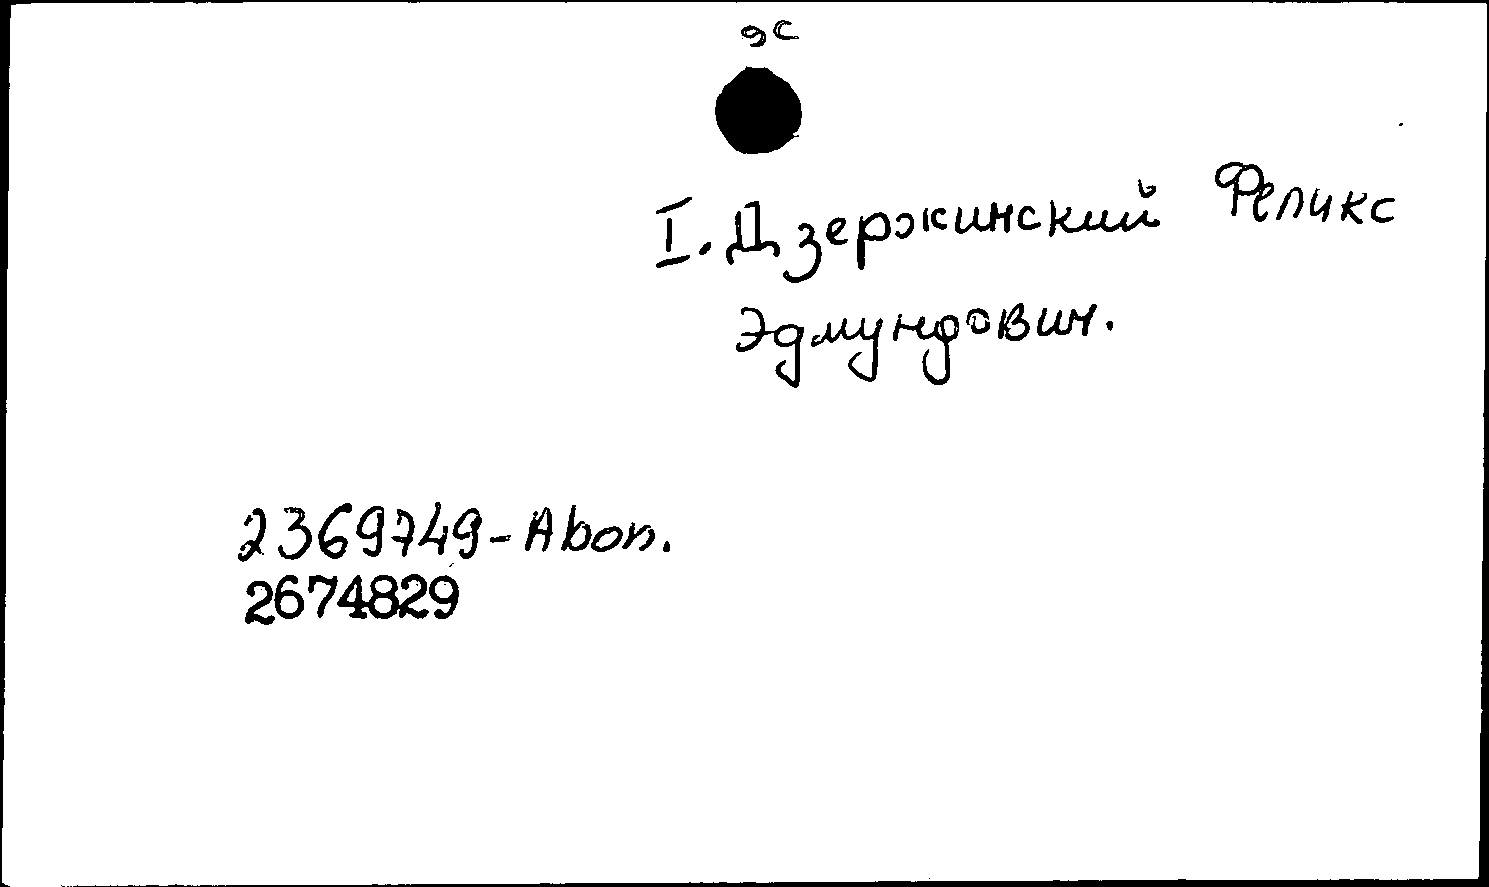 эс
I. Дзержинский Феликс
Эдмундович.
2369749-Abon.
2674829